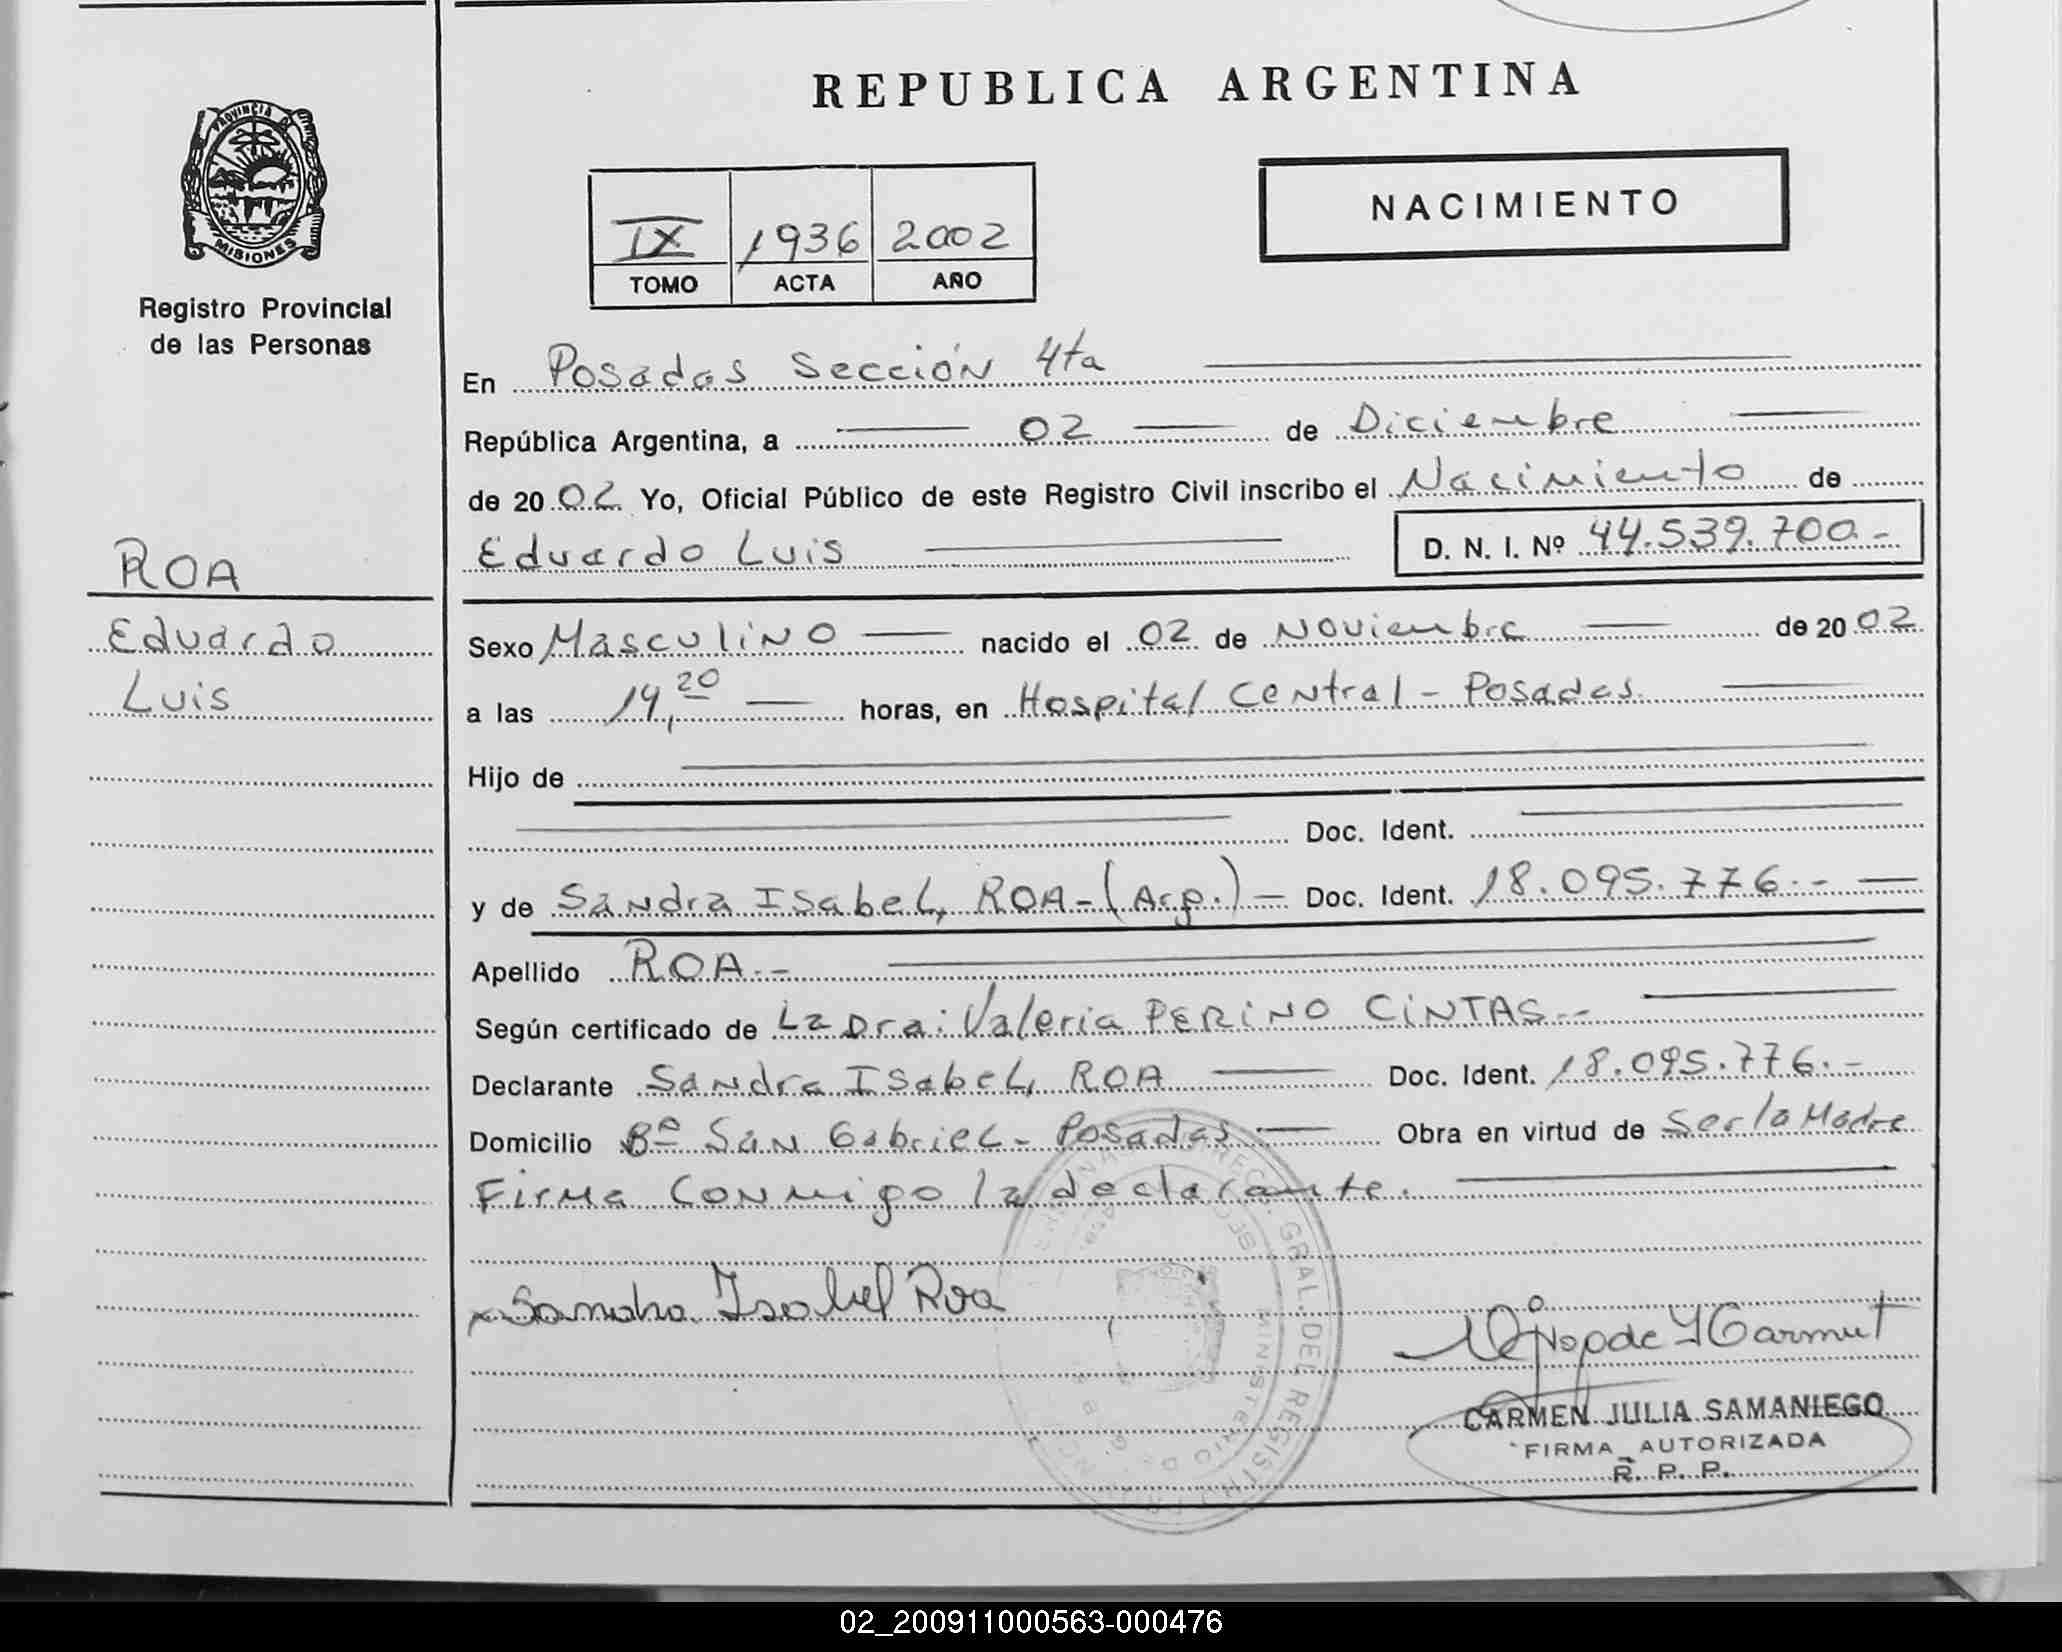 REPUBLICA ARGENTINA
PROVINCIA DE
MISIONES
Registro Provincial
de las Personas
NACIMIENTO
IX 1936 2002
TOMO ACTA AÑO
ROA
Eduardo
Luis
En Posadas Sección 4ta
República Argentina, a 02 de Diciembre
de 2002 Yo, Oficial Público de este Registro Civil inscribo el Nacimiento de
Eduardo Luis D. N. I. Nº 44.539.700.-
Sexo Masculino nacido el 02 de Noviembre de 2002
a las 14,20 horas, en Hospital Central - Posadas
Hijo de
Doc. Ident.
y de Sandra Isabel, ROA-(Arg.) - Doc. Ident. 18.095.776.-
Apellido ROA.-
Según certificado de La Dra: Valeria PERINO CINTAS.-
Declarante Sandra Isabel, ROA Doc. Ident. 18.095.776.-
Domicilio Bº San Gabriel - Posadas Obra en virtud de Ser la Madre
Firma Conmigo la declarante.
Sandra Isabel Roa
CARMEN JULIA SAMANIEGO
FIRMA AUTORIZADA
R. P. P.
GRAL. DEL REGISTRO
MINISTERIO DE
02_200911000563-000476